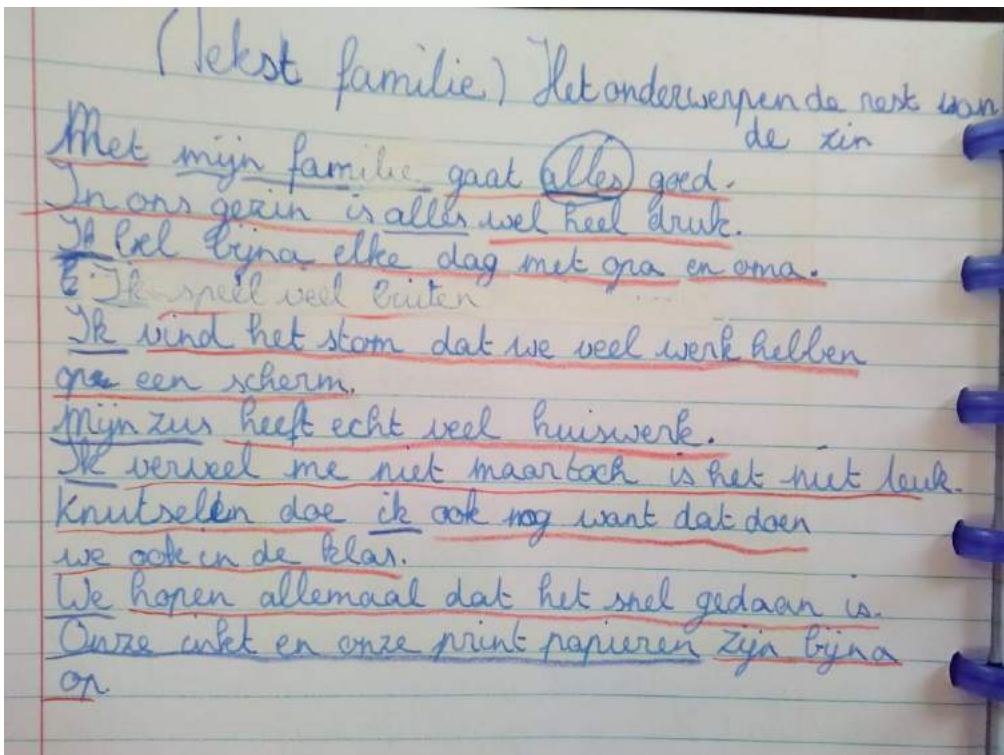 (Tekst familie) Het onderwerp en de rest van
de zin
Met mijn familie gaat alles goed.
In ons gezin is alles wel heel druk.
Ik bel bijna elke dag met opa en oma.
Ik speel veel buiten
Ik vind het stom dat we veel werk hebben
op een scherm.
Mijn zus heeft echt veel huiswerk.
Ik verveel me niet maar toch is het niet leuk.
Knutselen doe ik ook nog want dat doen
we ook in de klas.
We hopen allemaal dat het snel gedaan is.
Onze inkt en onze print papieren zijn bijna
op.